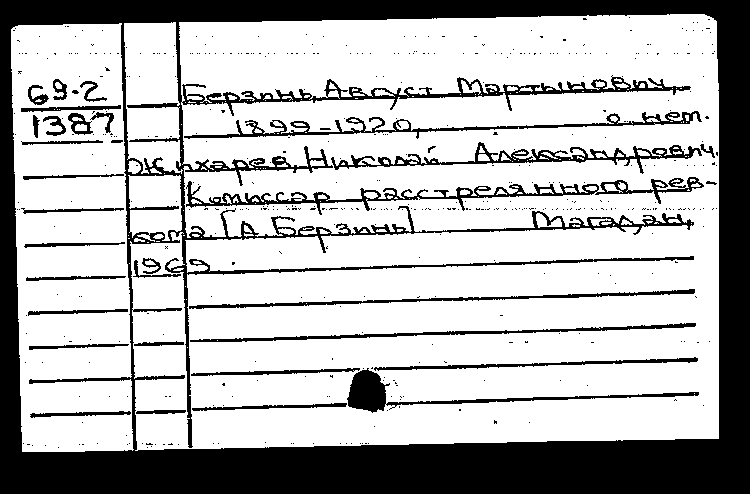 69-2 Берзинь, Август Мартынович,
1387 1899-1920, о нем.
Жихарев, Николай Александрович.
Комиссар расстрелянного рев-
кома [А. Берзинь] Магадан,
1969